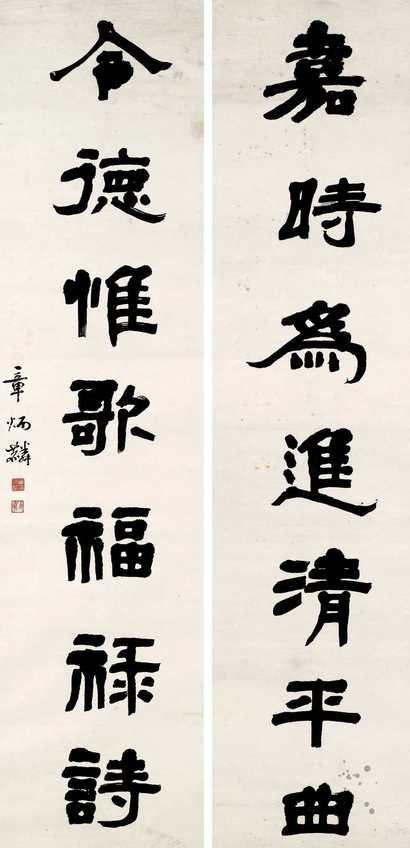 嘉時為進清平曲
令德惟歌福祿詩
章炳麟